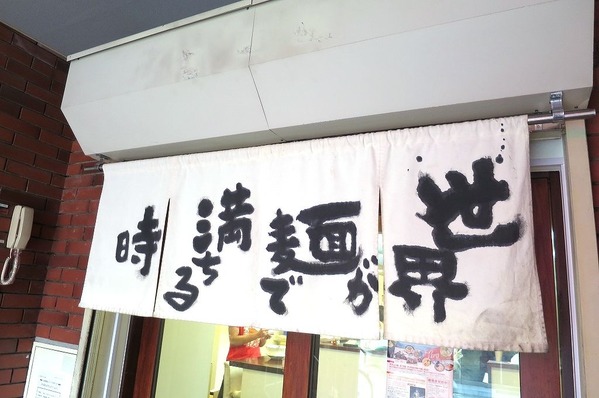 世界が
麺で
満ちる
時